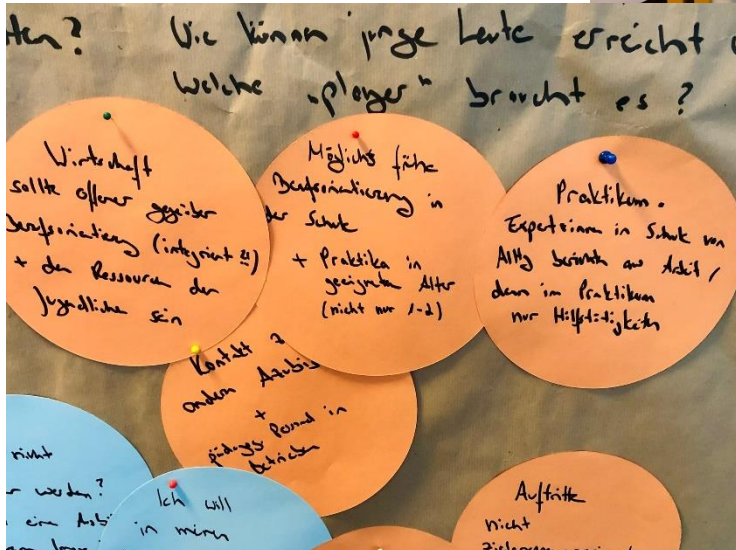 Wie können junge Leute erreicht
welche "player" braucht es?
Wirtschaft
sollte offener gegenüber
Berufsorientierung (integriert
+ den Ressourcen der
Jugendliche sein
Möglichst frühe
Berufsorientierung in
der Schule
+ Praktika in
geeigneten Alter
(nicht nur 1-2)
Praktikum.
Expertinnen in Schule von
berichten aus Arbeit,
denn im Praktikum
nur Hilfstätigkeiten
Kontakt
andern Azubis
+
pädagog. Personal in
betrieben
nicht
werden?
Ich will
in meinen
Auftritte
nicht